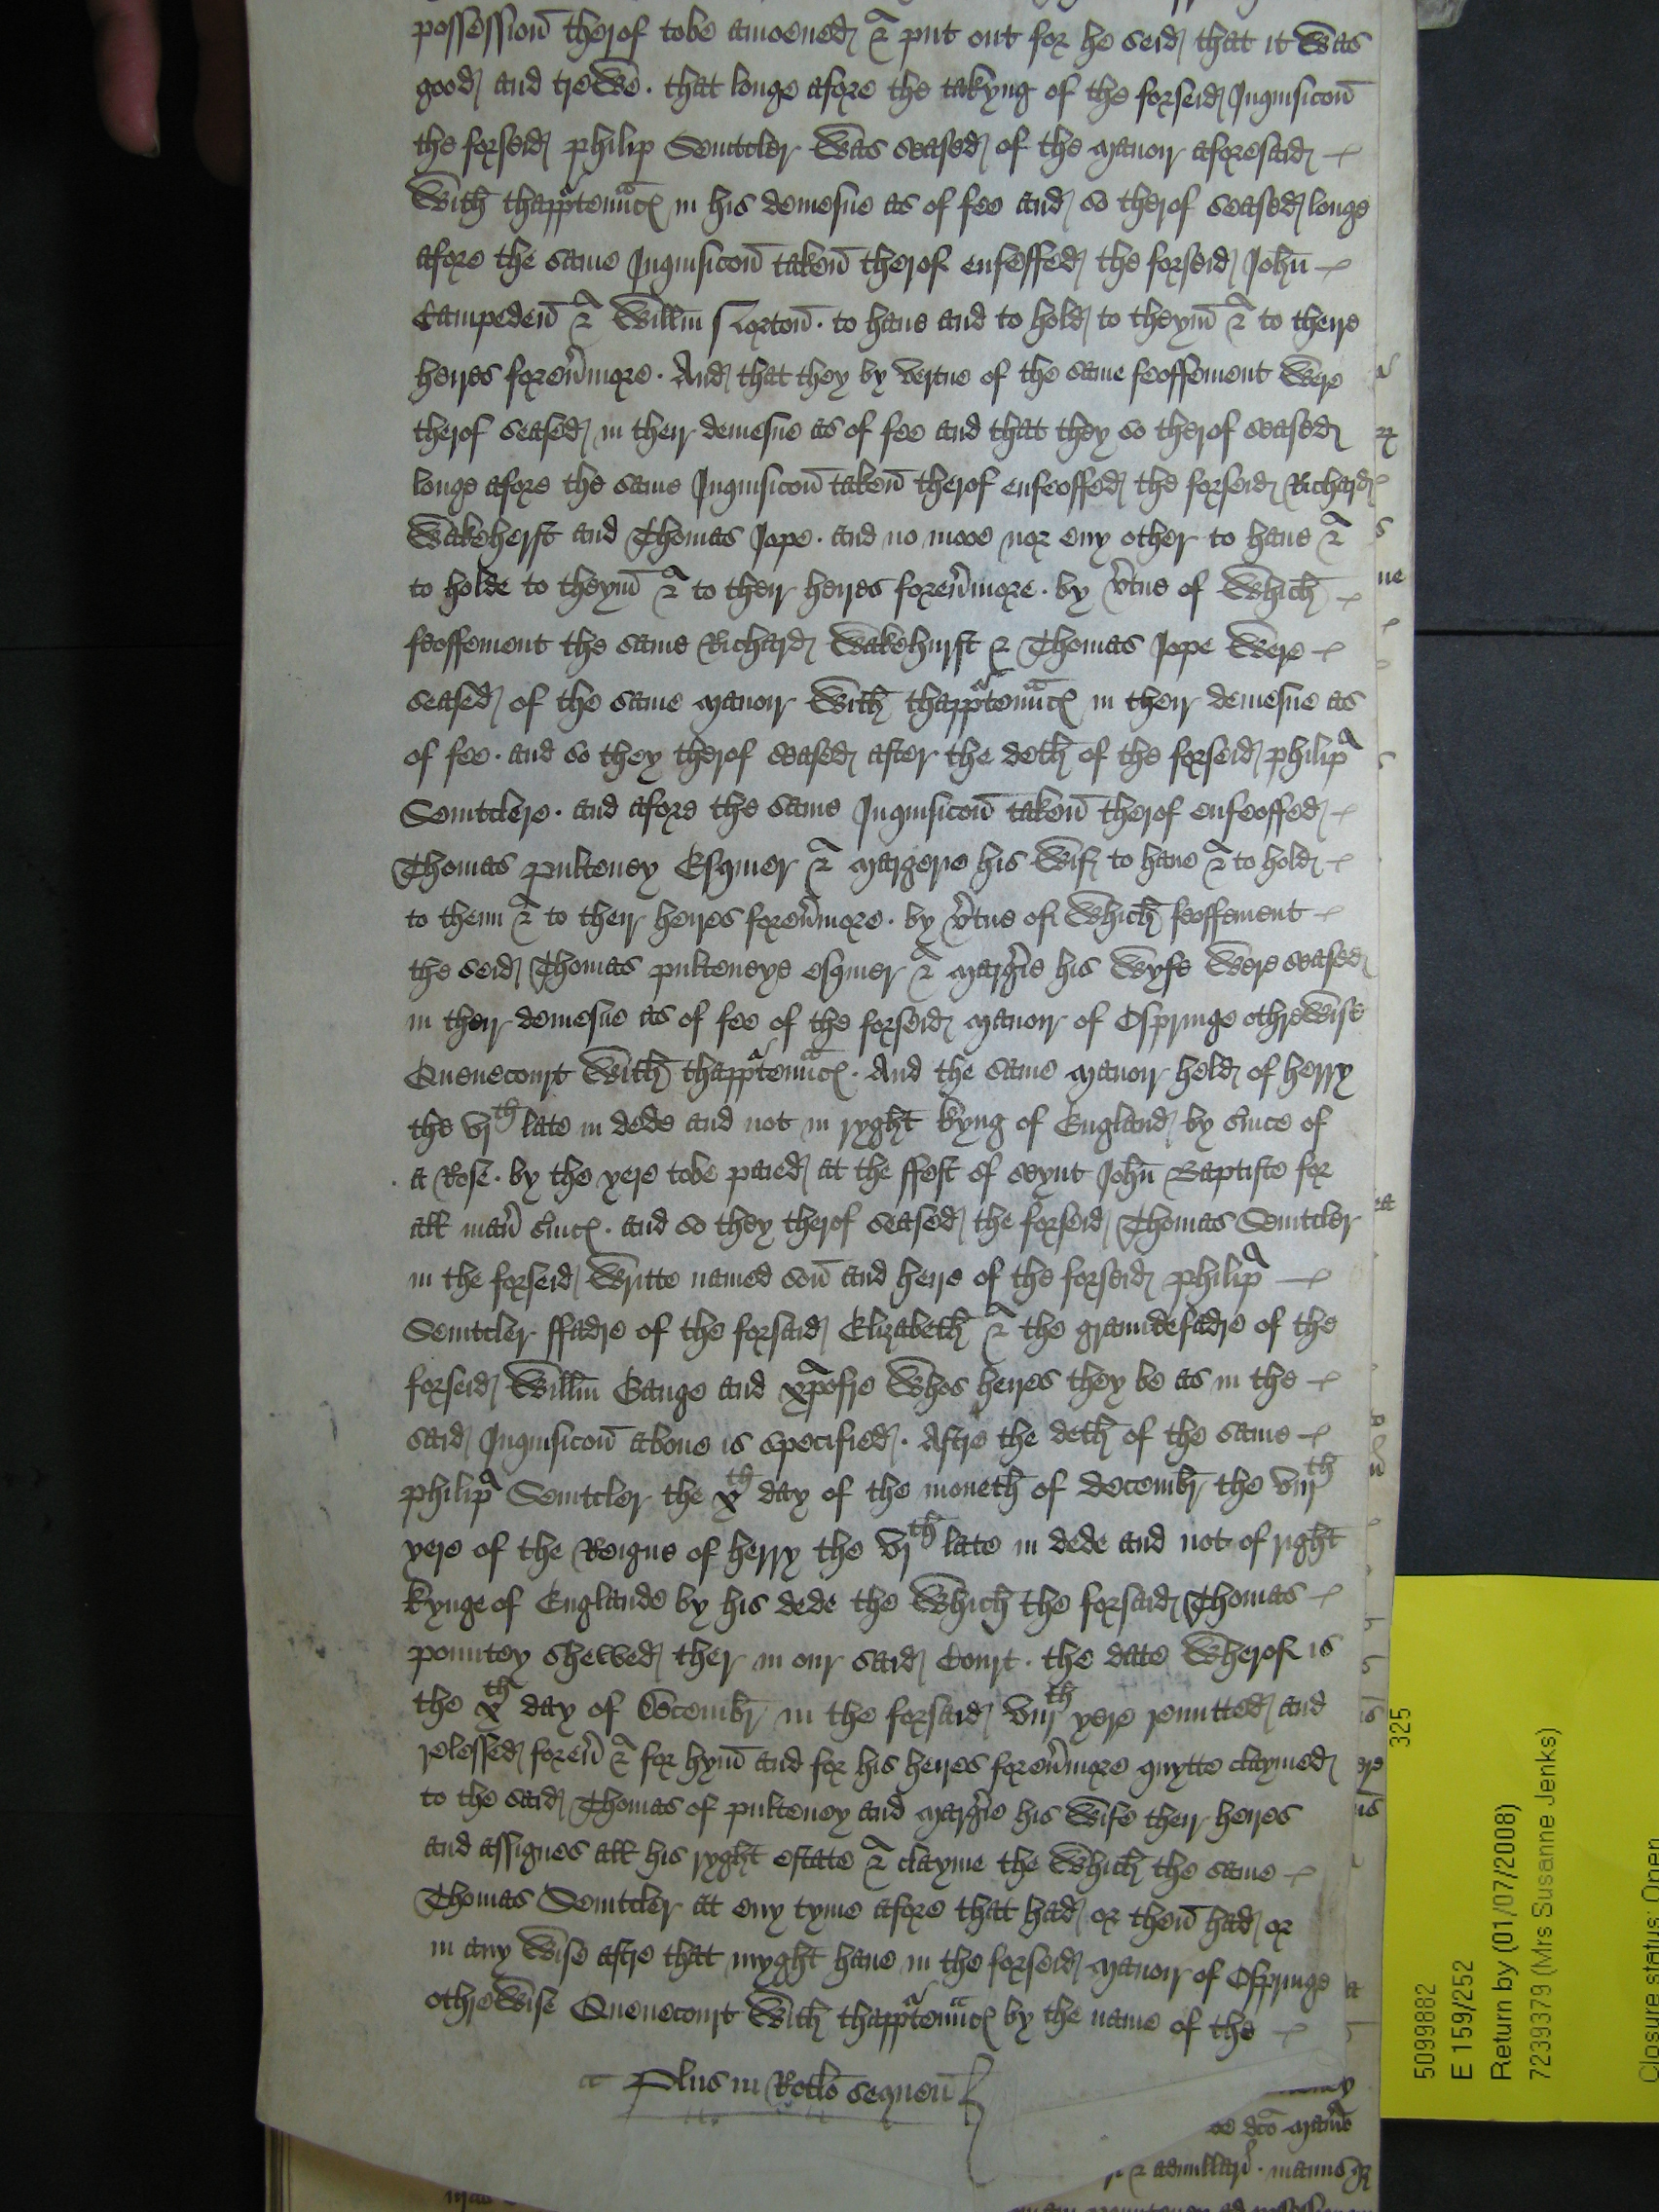 possession̄ therof tobe amoened & put out for he seid that it was
good and trewe · that longe afore the takyng of the forseid Inquisicon̄
the forseid Philip Seintcler was seased of the manoir aforesaid
with thapp̄tenn̄c̄ in his demesne as of fee and so therof seased longe
afore the same Inquisicon̄ taken̄ therof enfeffed the forseid Joh̄n
Campeden̄ & Will̄m Lorton̄ · to haue and to hold to theym̄ & to theire
heires foreu̓more · And that they by vertue of the same feoffement were
therof seased in their demesne as of fee and that they so therof seased
longe afore the same Inquisicon̄ taken̄ therof enfeoffed the forseid Richard
Wakeherst and Thomas Jope · and no moo nor eny other to haue &
to holde to theym̄ & to their heires foreu̓more · by v̓tue of which
feoffement the same Richard Wakehurst & Thomas Jope were
seased of the same manoir with thapp̄tenn̄c̄ in their demesne as
of fee · and so they therof seased after the deth of the forseid Philip
Seintclere · and afore the same Inquisicon̄ taken̄ therof enfeoffed
Thomas Pulteney Esquier & Margerie his wif to haue & to hold
to theim & to their heires foreu̓more · by v̓tue of which feoffement
the seid Thomas Pulteneye esquier & Marg̓ie his wyfe were seased
in their demesne as of fee of the forseid manoir of Ospringe othrewise
Quenecourt with thapp̄tenn̄c̄ · And the same manoir hold of Herry
the vjth late in dede and not in ryght kyng of England by s̓uice of
a Rose · by the yere tobe paied at the ffest of seynt Joh̄n Baptiste for
all man̓ s̓uic̄ · and so they therof seased the forseid Thomas Seintcler
in the forseid writte named son̄ and heire of the forseid Philip
Seintcler ffadre of the forsaid Elizabeth & the graundefadre of the
forseid Will̄m Gauge and xp̄ofre whos heires they be as in the
said Inquisicon̄ aboue is specified · Aftre the deth of the same
Philip Seintcler the xth day of the moneth of Decembr̄ the viijth
yere of the Reigne of Herry the vjth late in dede and not of right
kynge of Englande by his dede the which the forsaid Thomas
Pountey shewed ther in our said Court · the date wherof is
the xth day of Decembr̄ in the forsaid viijth yere remitted and
relessed foreu̓ & for hym̄ and for his heires foreu̓more quytte claymed
to the said Thomas of Pulteney and Marg̓ie his wife their heires
and assignes all his ryght estate & clayme the which the same
Thomas Seintcler at eny tyme afore that had or then̄ had or
in any wise aftre that myght haue in the forseid manoir of Ospringe
othrewise Quenecourt with thapp̄tenn̄c̄ by the name of the
Plus in Rotlo sequen̄
325
5099882
E 159/252
Return by (01/07/2008)
7239379 (Mrs Susanne Jenks)
Closure status: Open